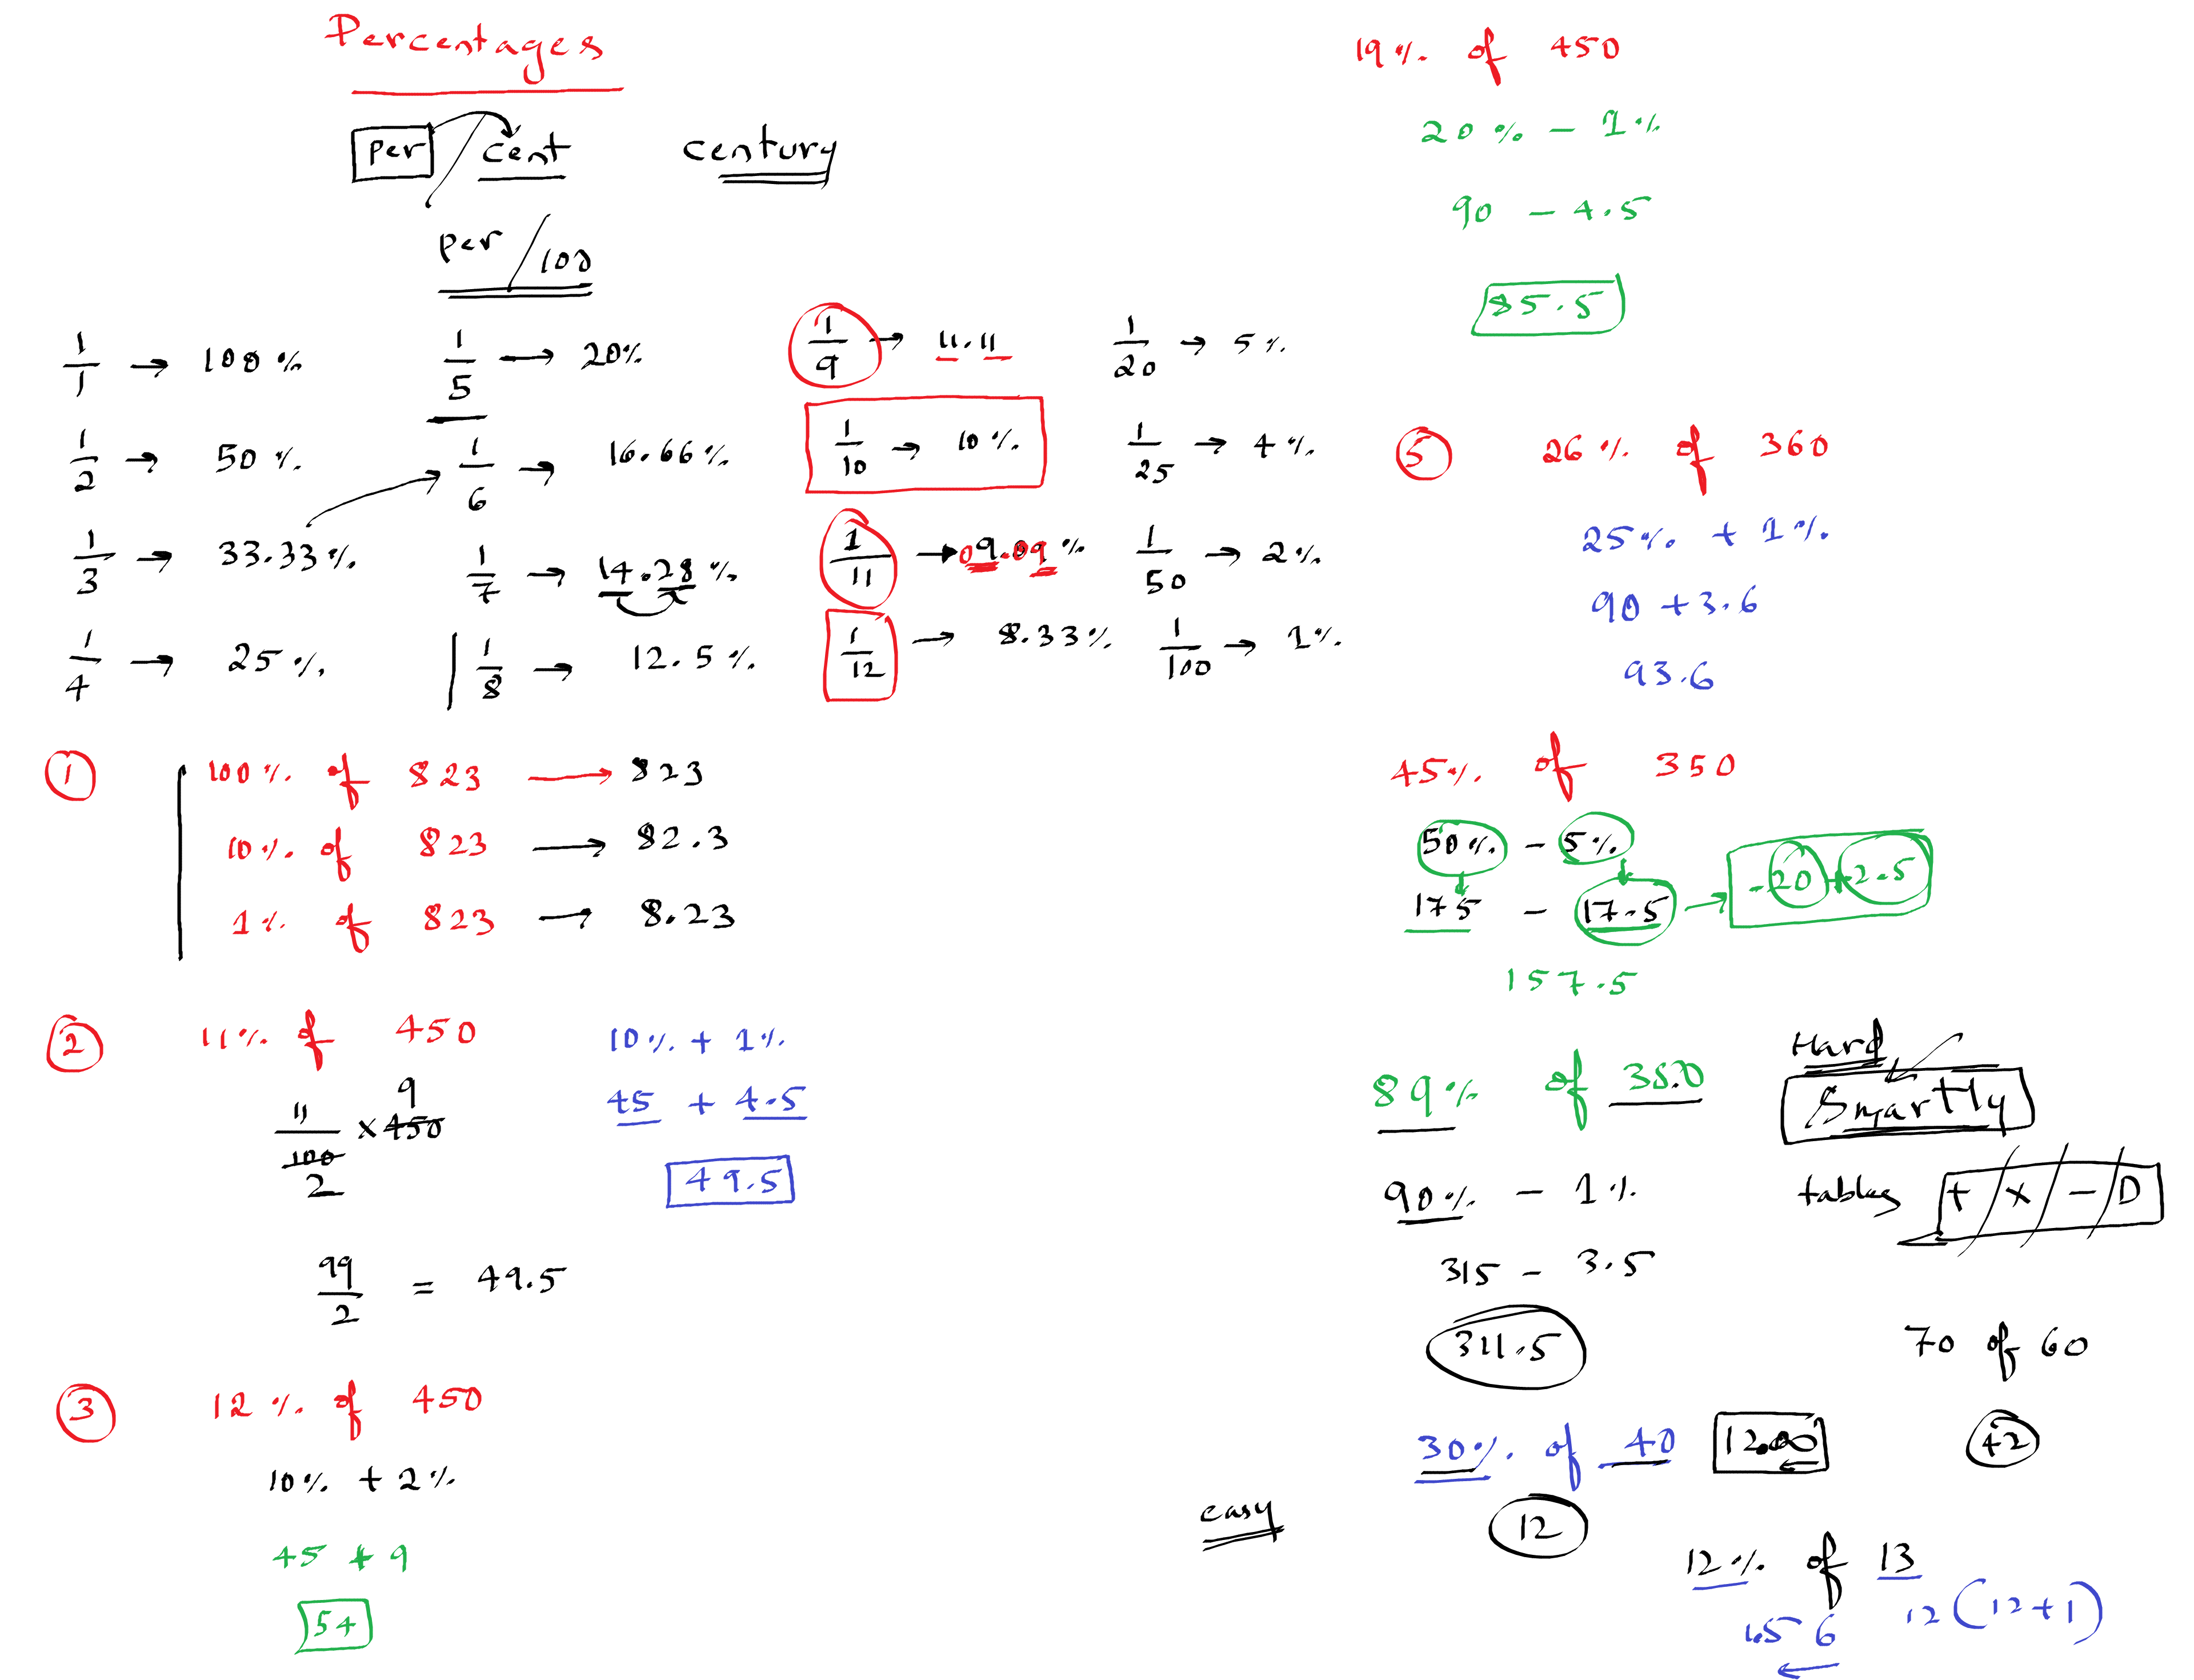 Percentages
per / cent century
per / 100
1/1 → 100%
1/2 → 50%
1/3 → 33.33%
1/4 → 25%
1/5 → 20%
1/6 → 16.66%
1/7 → 14.28%
1/8 → 12.5%
1/9 → 11.11
1/10 → 10%
1/11 → 09.09%
1/12 → 8.33%
1/20 → 5%
1/25 → 4%
1/50 → 2%
1/100 → 1%
① 100% of 823 → 823
10% of 823 → 82.3
1% of 823 → 8.23
② 11% of 450
11/100 × 450
9
2
99/2 = 49.5
10% + 1%
45 + 4.5
49.5
③ 12% of 450
10% + 2%
45 + 9
54
19% of 450
20% - 1%
90 - 4.5
85.5
⑤ 26% of 360
25% + 1%
90 + 3.6
93.6
45% of 350
50% - 5%
175 - 17.5 → -20 + 2.5
157.5
89% of 350
90% - 1%
315 - 3.5
311.5
Hard
Smartly
tables + / × / - / D
30% of 40 12.00
12
70 of 60
42
easy
12% of 13
12 (12+1)
1.56